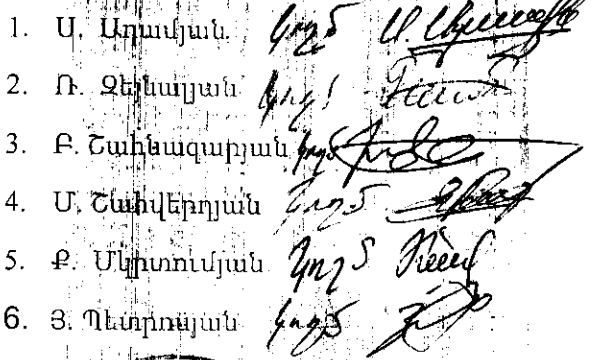 1. Ս. Ադամյան. կողմ
2. Ռ. Զեյնալյան կողմ
3. Բ. Շահնազարյան կողմ
4. Մ. Շահվերդյան կողմ
5. Ք. Մկրտումյան կողմ
6. Յ. Պետրոսյան կողմ